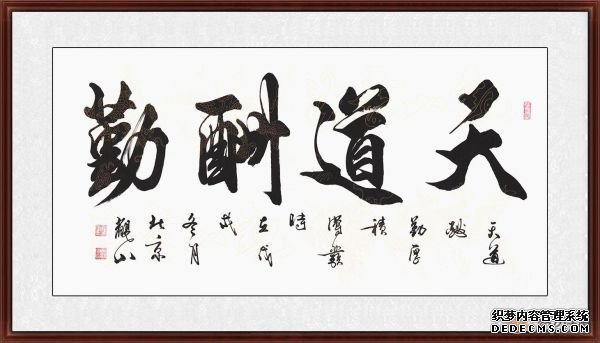 天道酬勤
天道
酬
勤厚
積
薄發
時
在戊
戌
冬月
北京
织梦内容管理系统
DEDECMS.COM